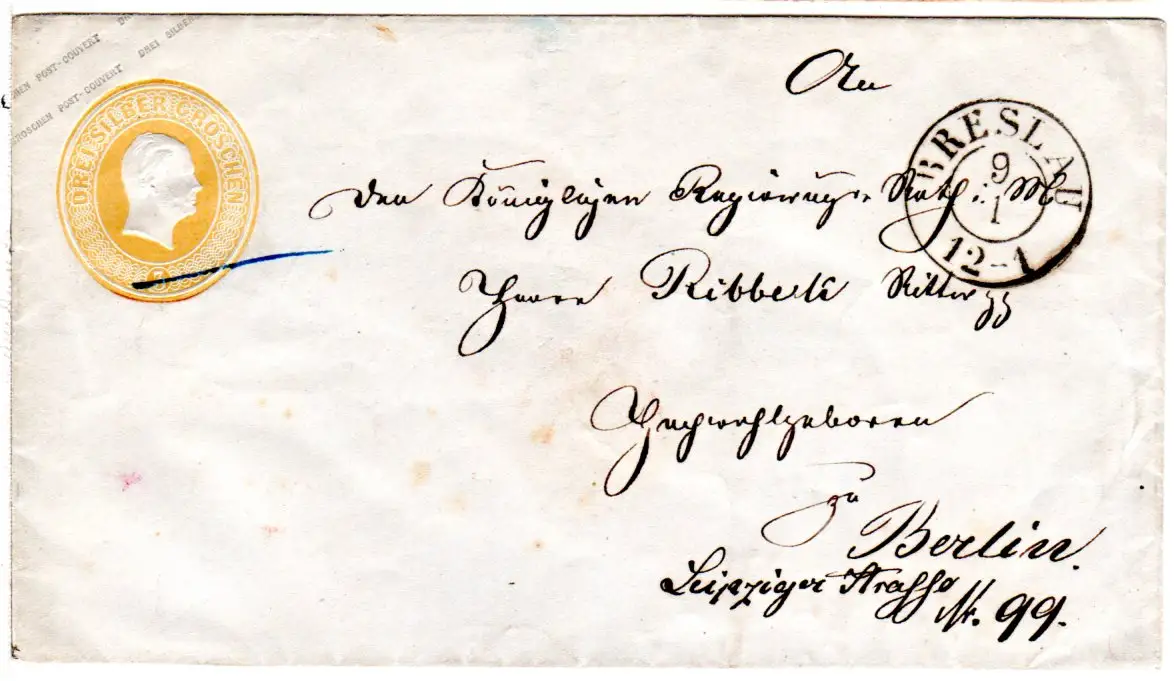 DREI SILBER
GROSCHEN POST-COUVERT
DREI SILBER GROSCHEN
3
BRESLAU
9
1
12-1
An
den Königlichen Regierungs-Rath
Herrn Ribbeck Ritter pp
Hochwohlgeboren
zu
Berlin.
Leipziger Strasse
Nr. 99.